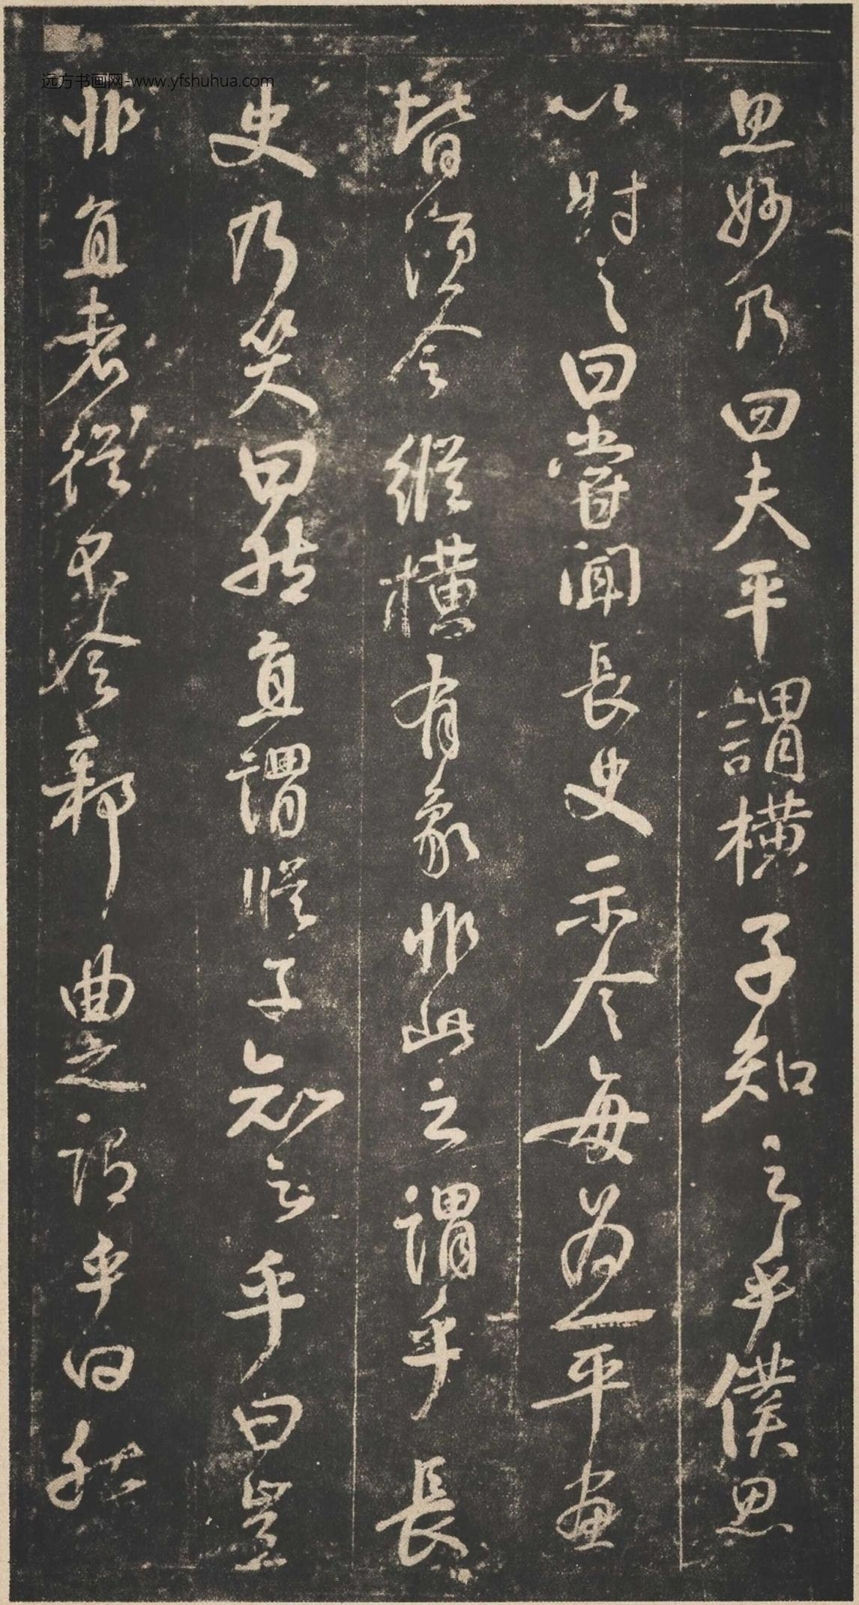 思妙乃曰夫平謂橫子知之乎僕思
以對之曰嘗聞長史示令每為一平畫
皆須令縱橫有象非此之謂乎長
史乃笑曰然直謂縱子知之乎曰豈
非直者從不令邪曲之謂乎曰然
远方书画网-www.yfshuhua.com